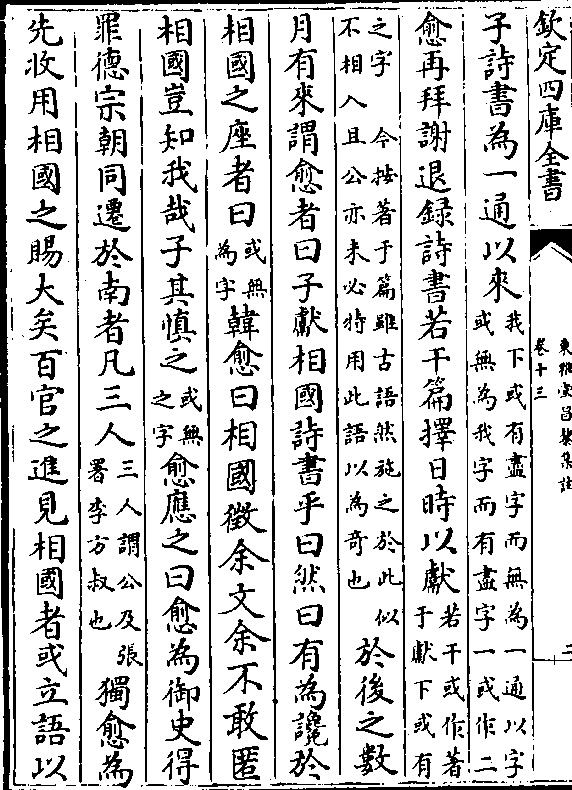 欽定四庫全書
東雅堂昌黎集註
卷十三
二
子詩書為一通以來我下或有盡字而無為一通以字
或無為我字而有盡字一或作二
愈再拜謝退録詩書若干篇擇日時以獻若干或作著
于獻下或有
之字　今按著于篇雖古語然施之於此似
不相入且公亦未必特用此語以為奇也於後之數
月有來謂愈者曰子獻相國詩書乎曰然曰有為讒於
相國之座者曰或無
為字韓愈曰相國徵余文余不敢匿
相國豈知我哉子其慎之或無
之字愈應之曰愈為御史得
罪德宗朝同遷於南者凡三人三人謂公及張
署李方叔也獨愈為
先收用相國之賜大矣百官之進見相國者或立語以